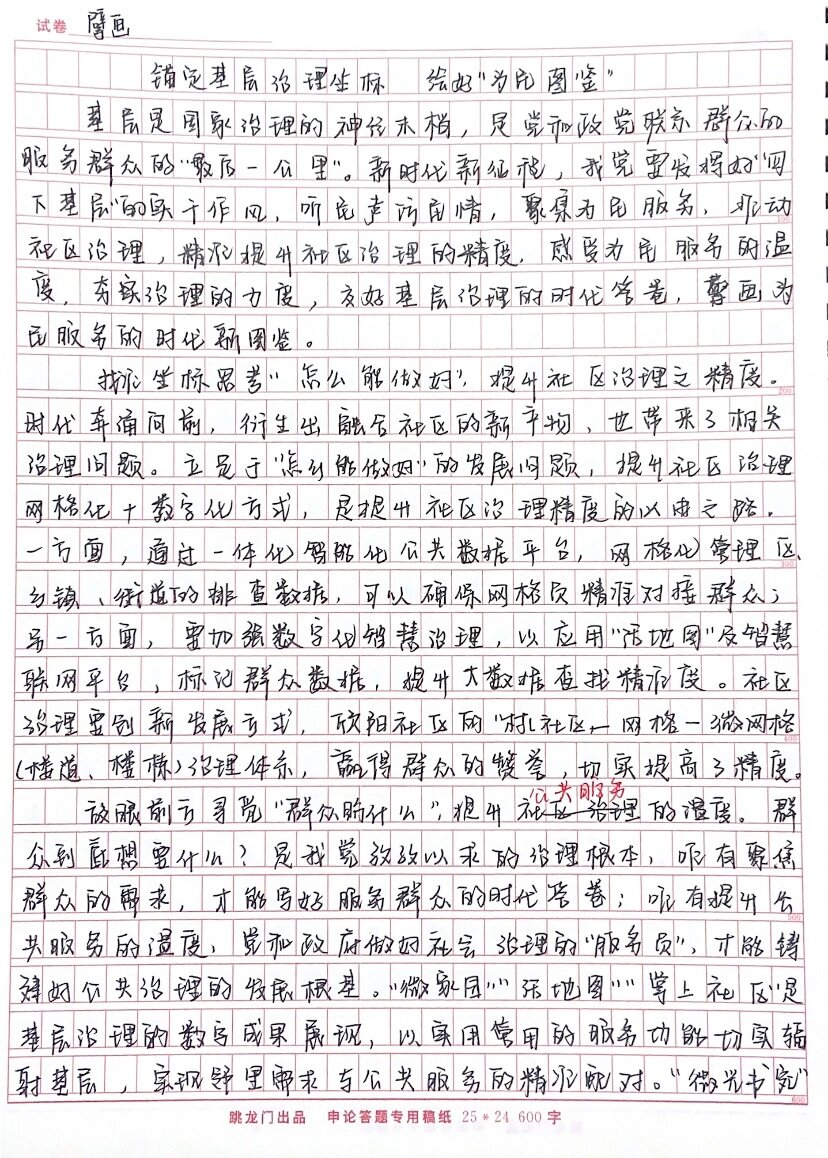 试卷 擘画
锚定基层治理坐标 绘好"为民图鉴"
基层是国家治理的神经末梢，是党和政党联系群众的
服务群众的"最后一公里"。新时代新征程，我党要发挥好"四
下基层"的实干作风，听民声访民情，聚集为民服务，推动
社区治理，精准提升社区治理的精度，感受为民服务的温
度，夯实治理的力度，交好基层治理的时代答卷，擘画为
民服务的时代新图鉴。
找准坐标思考"怎么能做好"，提升社区治理之精度。
200
时代奔涌向前，衍生出融合社区的新产物，也带来了相关
治理问题。立足于"怎么能做好"的发展问题，提升社区治理
网格化+数字化方式，是提升社区治理精度的必由之路。
一方面，通过一体化智能化公共数据平台，网格化管理区、
300
乡镇、街道的排查数据，可以确保网格员精准对接群众；
另一方面，要加强数字化智慧治理，以应用"活地图"及智慧
联网平台，标记群众数据，提升大数据查找精准度。社区
治理要创新发展方式，欣阳社区的"村社区—网格—微网格
400
(楼道、楼栋)治理体系，赢得群众的赞誉，切实提高了精度。
公共服务
放眼前方寻觅"群众盼什么"，提升社区治理的温度。群
众到底想要什么？是我党孜孜以求的治理根本，唯有聚焦
群众的需求，才能写好服务群众的时代答卷；唯有提升公
500
共服务的温度，党和政府做好社会治理的"服务员"，才能铸
建好公共治理的发展根基。"微家园""活地图""掌上社区"是
基层治理的数字成果展现，以实用管用的服务功能切实辐
射基层，实现邻里需求与公共服务的精准配对。"微光书苑"
600
跳龙门出品 申论答题专用稿纸 25*24 600字